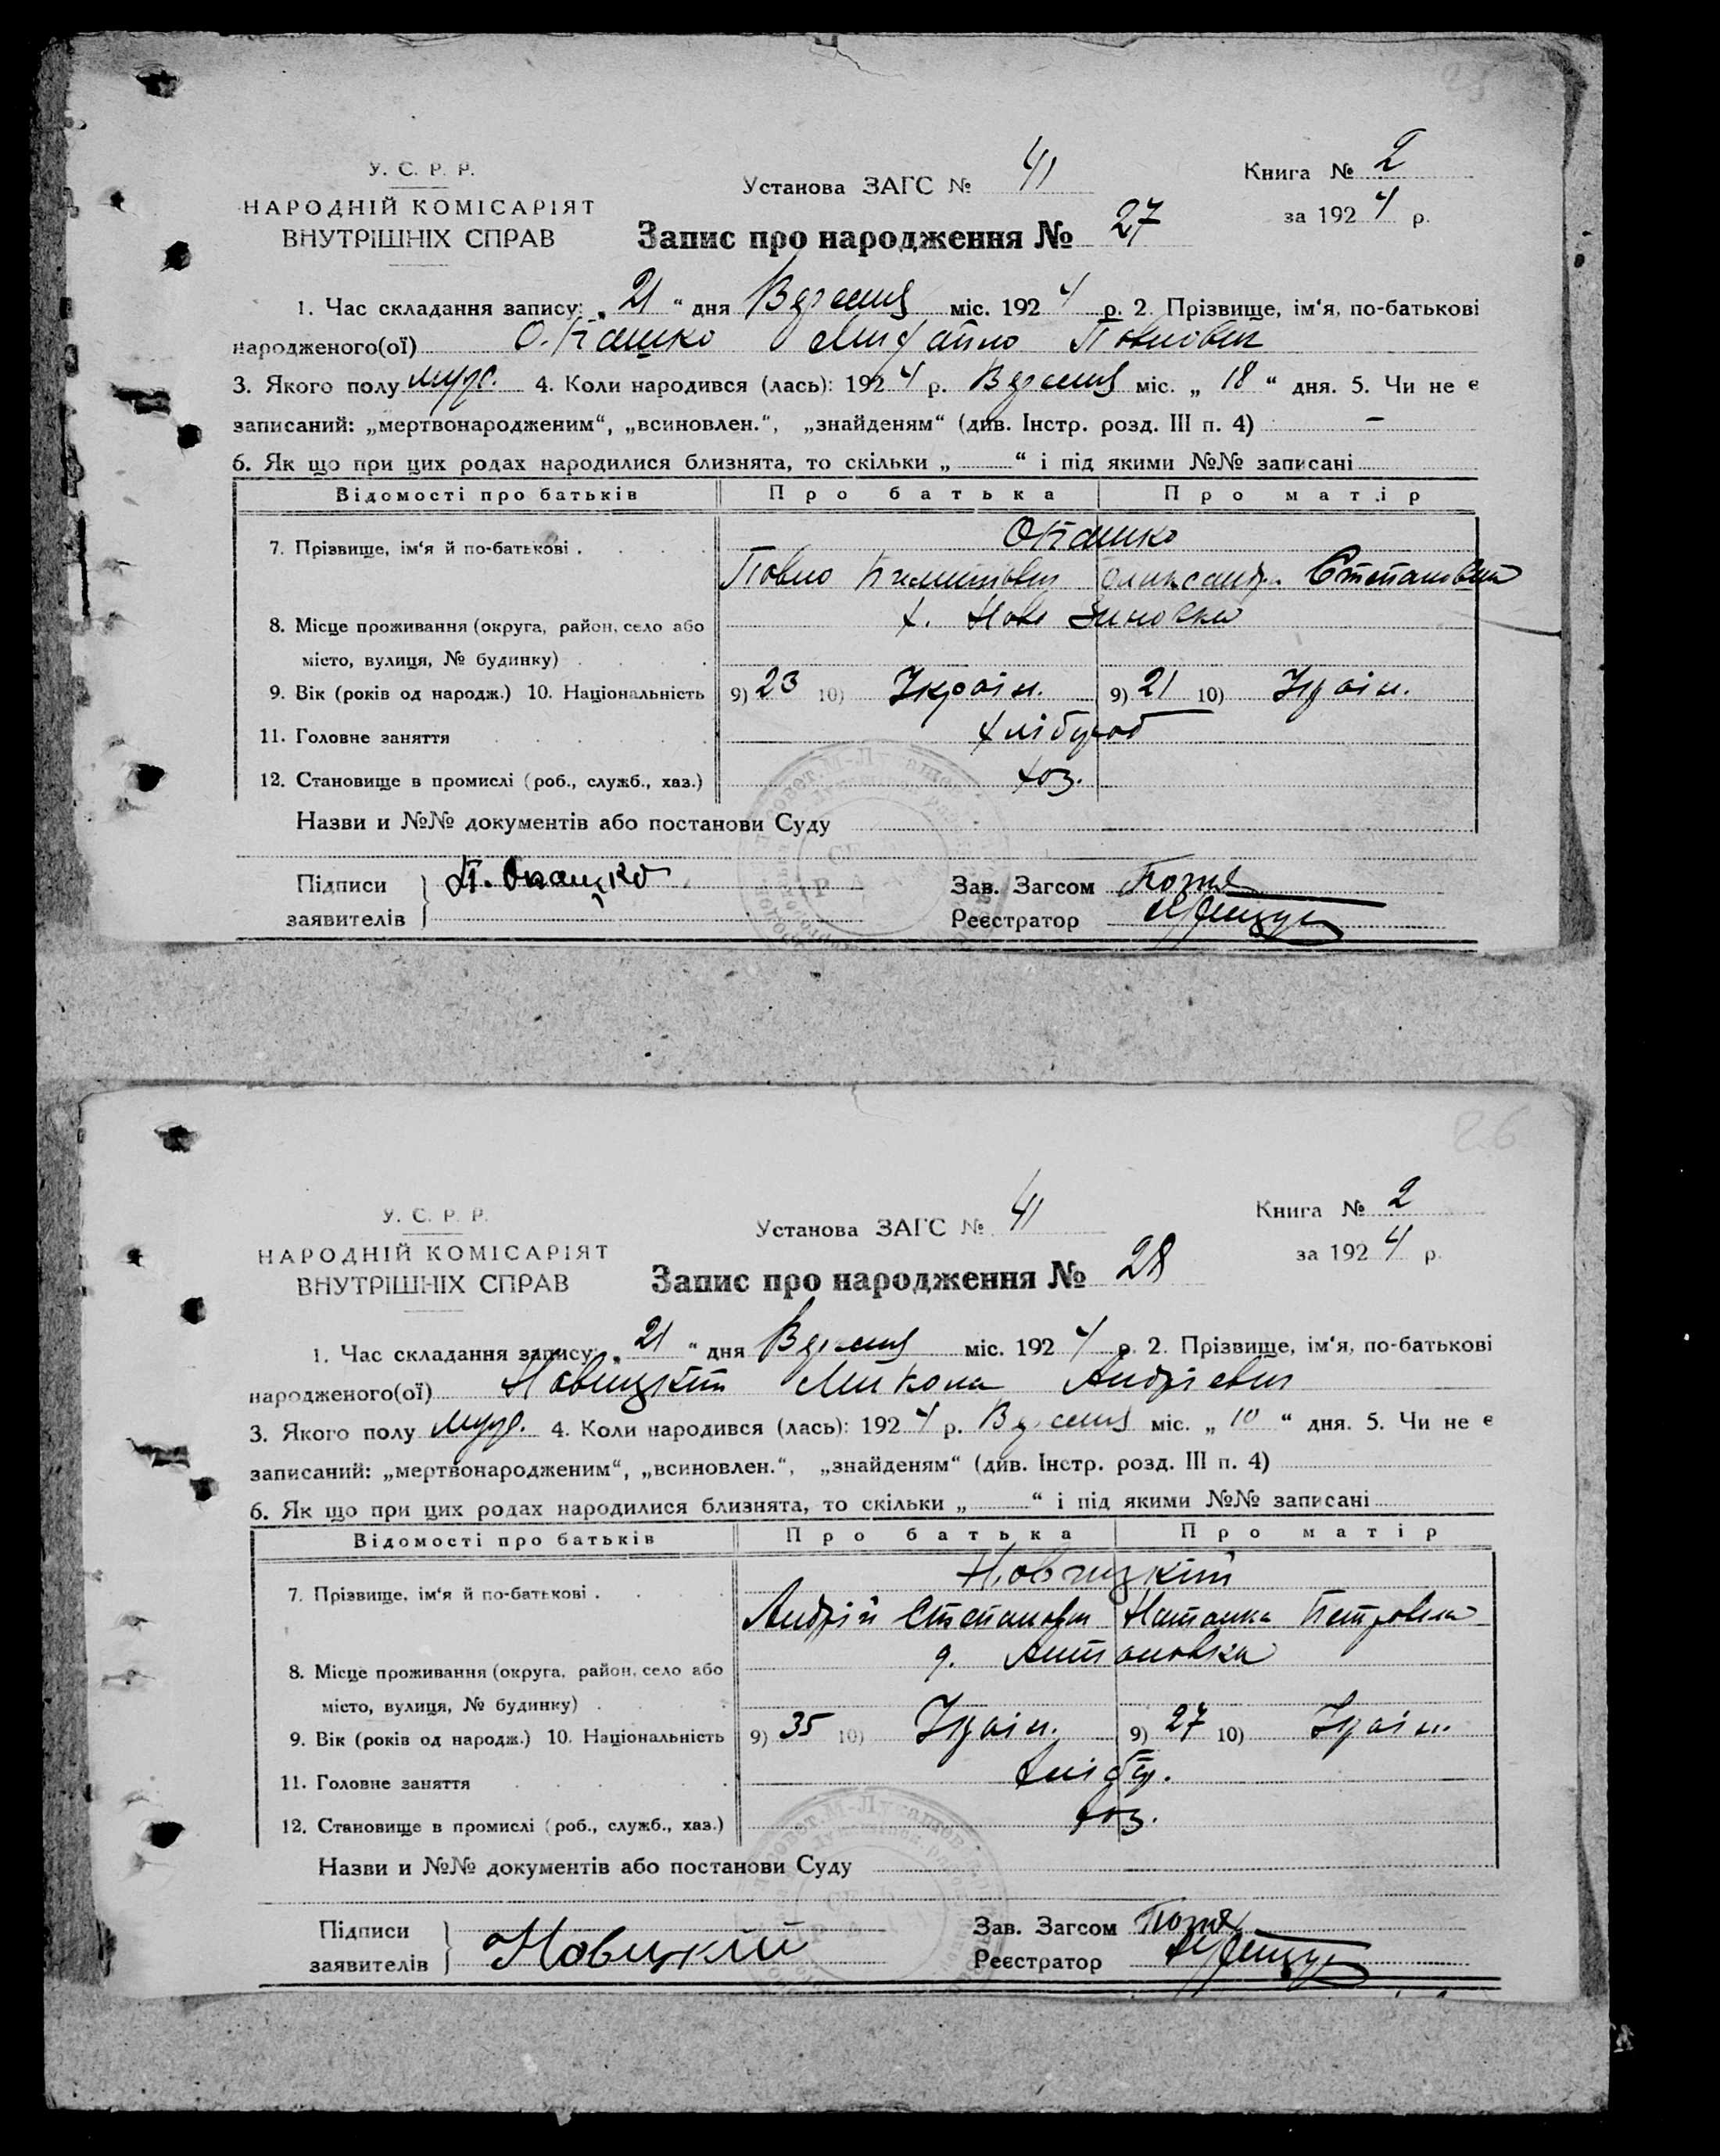 25
У. С. Р. Р.
НАРОДНІЙ КОМІСАРІЯТ
ВНУТРІШНІХ СПРАВ
Установа ЗАГС № 41
Книга № 2
за 1924 р.
Запис про народження № 27
1. Час складання запису: „ 21 “ дня Вересня міс. 1924 р. 2. Прізвище, ім‘я, по-батькові
народженого(ої) Михайло Павлович
3. Якого полу муж. 4. Коли народився (лась): 1924 р. Вересня міс. „ 18 “ дня. 5. Чи не є
записаний: „мертвонародженим“, „всиновлен.“, „знайденям“ (див. Інстр. розд. III п. 4) –
6. Як що при цих родах народилися близнята, то скільки „ “ і під якими №№ записані
Відомості про батьків Про батька Про матір
7. Прізвище, ім‘я й по-батькові .
Павло Олександра Степановна
8. Місце проживання (округа, район, село або х. Нове
місто, вулиця, № будинку)
9. Вік (років од народж.) 10. Національність 9) 23 10) Україн. 9) 21 10) Україн.
11. Головне заняття хлібороб
12. Становище в промислі (роб., служб., хаз.) хоз.
Назви и №№ документів або постанови Суду
Підписи
заявителів
Зав. Загсом
Реєстратор
26
У. С. Р. Р.
НАРОДНІЙ КОМІСАРІЯТ
ВНУТРІШНІХ СПРАВ
Установа ЗАГС № 41
Книга № 2
за 1924 р.
Запис про народження № 28
1. Час складання запису: „ 21 “ дня Вересня міс. 1924 р. 2. Прізвище, ім‘я, по-батькові
народженого(ої) Новицкій Микола Андріевич
3. Якого полу муж. 4. Коли народився (лась): 1924 р. Вересня міс. „ 10 “ дня. 5. Чи не є
записаний: „мертвонародженим“, „всиновлен.“, „знайденям“ (див. Інстр. розд. III п. 4)
6. Як що при цих родах народилися близнята, то скільки „ “ і під якими №№ записані
Відомості про батьків Про батька Про матір
Новицкій
7. Прізвище, ім‘я й по-батькові .
Андрій Степанович Наталка Петровна
8. Місце проживання (округа, район, село або д. Антановка
місто, вулиця, № будинку)
9. Вік (років од народж.) 10. Національність 9) 35 10) Україн. 9) 27 10) Україн.
11. Головне заняття хлібор.
12. Становище в промислі (роб., служб., хаз.) хоз.
Назви и №№ документів або постанови Суду
Підписи
заявителів Новицкій
Зав. Загсом
Реєстратор